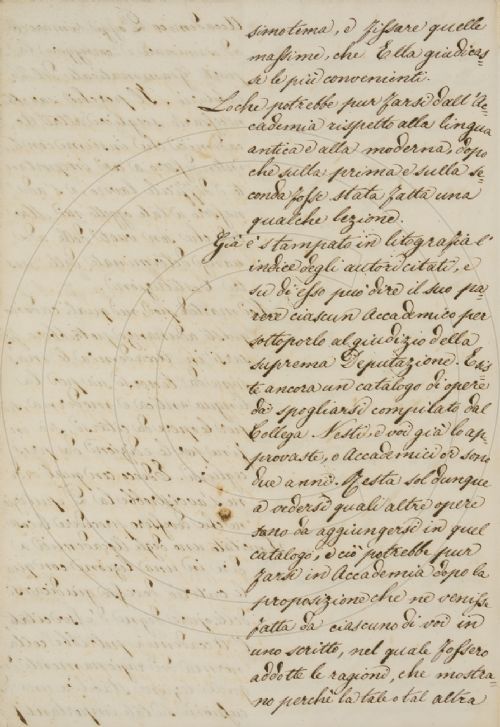 simo tema, e fissare quelle
massime, che Ella giudicas-
se le più convenienti.
Loche potrebbe pur farsi dall'Ac-
cademia rispetto alla lingua
antica e alla moderna, dopo
che sulla prima e sulla se-
conda fosse stata fatta una
qualche lezione.
Già è stampato in litografia l'
indice degli autori citati, e
su di esso può dire il suo pa-
rere ciascun Accademico per
sottoporlo al giudizio della
suprema Deputazione. Esis-
te ancora un catalogo di opere
da spogliarsi compilato dal
Collega Nesti, e voi già lo ap-
provaste, o Accademici or sono
due anni. Resta sol dunque
a vedersi quali altre opere
sono da aggiungersi in quel
catalogo, e ciò potrebbe pur
farsi in Accademia dopo la
proposizione che ne venisse
fatta da ciascuno di voi in
uno scritto, nel quale fossero
addotte le ragioni, che mostra-
no perchè la tale o tal altra